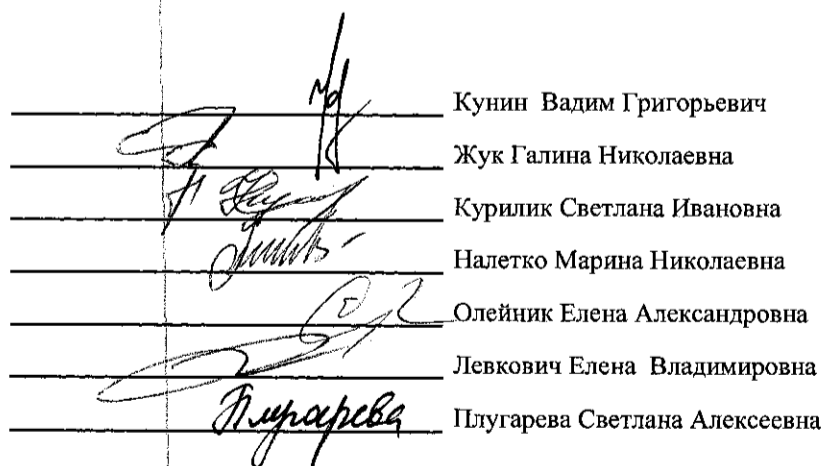 Кунин Вадим Григорьевич
Жук Галина Николаевна
Курилик Светлана Ивановна
Налетко Марина Николаевна
Олейник Елена Александровна
Левкович Елена Владимировна
Плугарева Плугарева Светлана Алексеевна